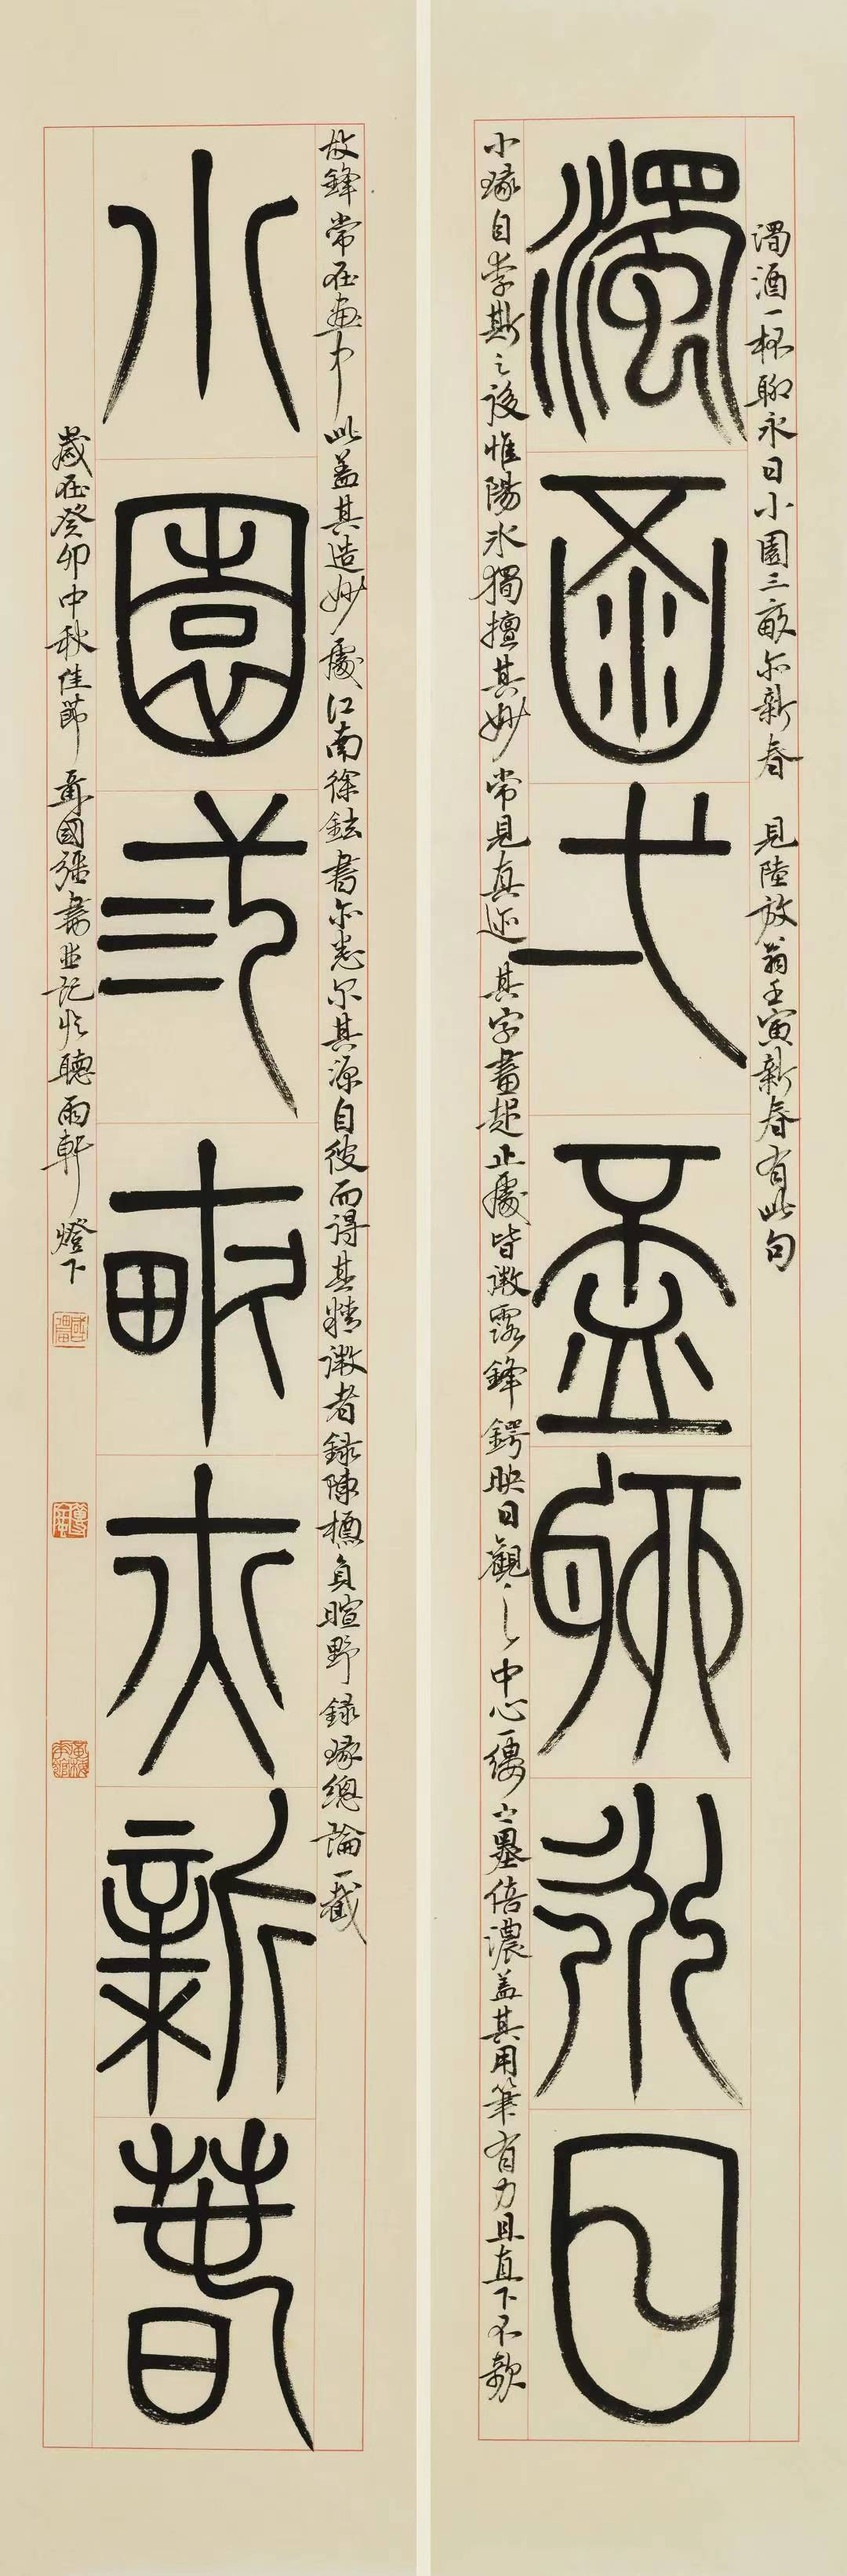 濁酒一杯聊永日小園三畝亦新春 見陸放翁壬寅新春有此句
濁酉弌盃聊永日
小瑑自李斯之後惟陽氷獨擅其妙常見真迹其字畫起止處皆微露鋒鍔映日觀之中心一縷之墨倍濃蓋其用筆有力且直下不欹
故鋒常在畫中此蓋其造妙處江南徐鉉書亦悉尔其源自彼而得其精微者録陳槱負暄野録瑑總論一截
小園弎畝亦新春
歲在癸卯中秋佳節聶國强書並記於聽雨軒燈下